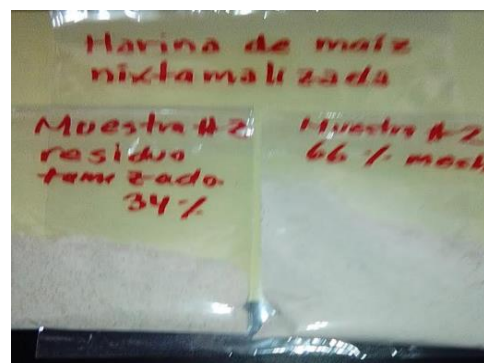 Harina de maíz
nixtamalizada
Muestra #2
residuo
tamizado
34%
Muestra #2
66 %